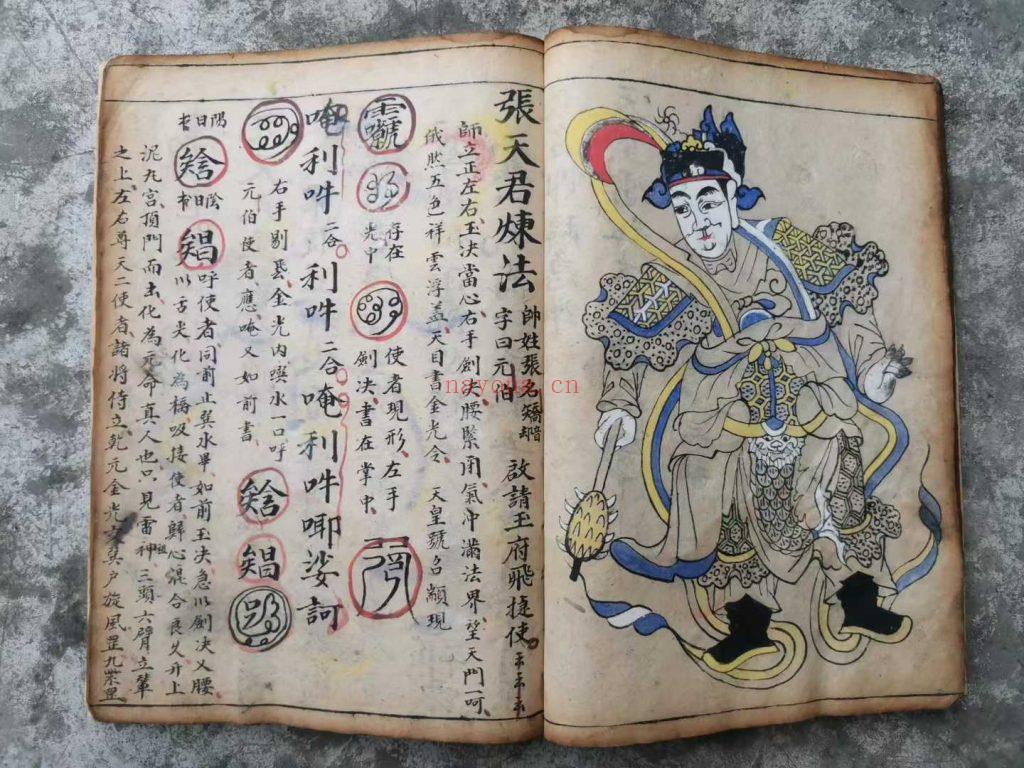 張天君煉法 帥姓張名 字曰元伯 啟請玉府飛捷使
師立正左右玉决當心右手劍决腰緊用氣冲滿法界望天門一呵
俄然五色祥雲浮蓋天目書金光令 天皇號召顯現
存在光中 使者現形左手劍决書在掌中
唵利吽二合利吽二合唵利吽唧娑訶
右手剔
金光内噀水一口呼元伯使者應唵又如前書
陽日
陰日
呼使者同前止巽水畢如前玉决急以劍决又腰
以舌尖化為橋吸接使者歸心混合良久升上
泥丸宫頂門而出化為元命真人也只見雷神三頭六臂立輦
之上左右尊天二使者諸將侍立乾元金光 巽户旋風罡九紫罡
nayona.cn